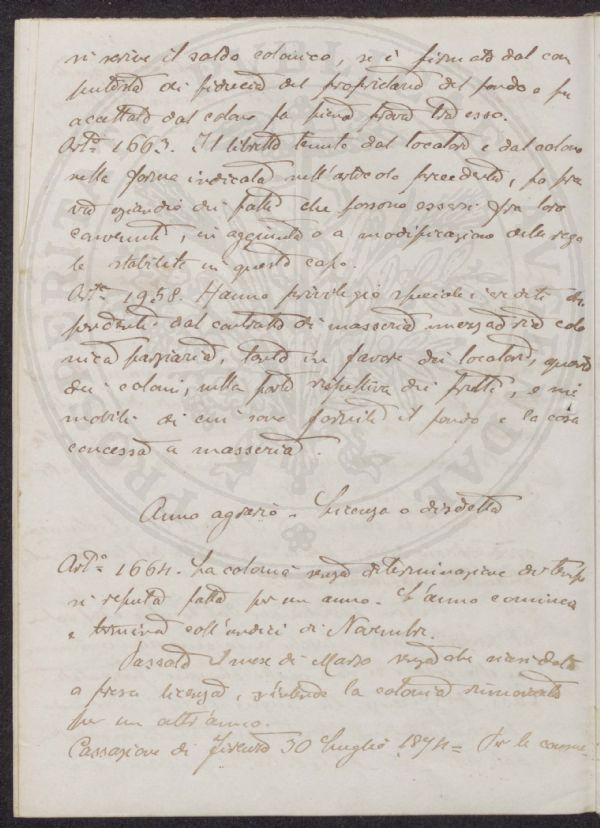 si scrive il saldo colonico, se è firmato dal com
putista di fiducia del proprietario del fondo e fu
accettato dal colono fa piena prova tra esso.
Art.o 1663. Il libretto tenuto dal locatore e dal colono
nella forma indicata nell'articolo precedente, fa pro
va eziandio dei patti che possono essersi fra loro
convenuti, in aggiunta o a modificazione delle rego
le stabilite in questo capo.
Art.o 1958. Hanno privilegio speciale i crediti di
pendenti dal contratto di masseria mezzadria colo
nica parziaria, tanto in favore dei locatori, quanto
dei coloni, sulla parte rispettiva dei frutti, e sui
mobili di cui sono forniti il fondo e la cosa
concessa a masseria.
Anno agrario - Licenza o disdetta
Art.o 1664. La colonia senza determinazione di tempo
si reputa fatta per un anno. L'anno comincia
e termina coll'undici di Novembre.
Passato il mese di Marzo senza che siasi data
o presa licenza, s'intende la colonia rinnovata
per un altr'anno.
Cassazione di Firenze 30 Luglio 1874 = Per le